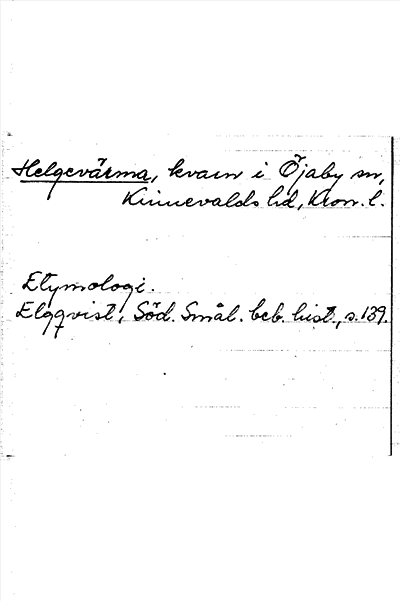 Helgevärma, kvarn i Öjaby sn,
Kinnevalds hd, Kron. l.
Etymologi.
Elgqvist, Söd. Smål. beb. hist., s. 139.